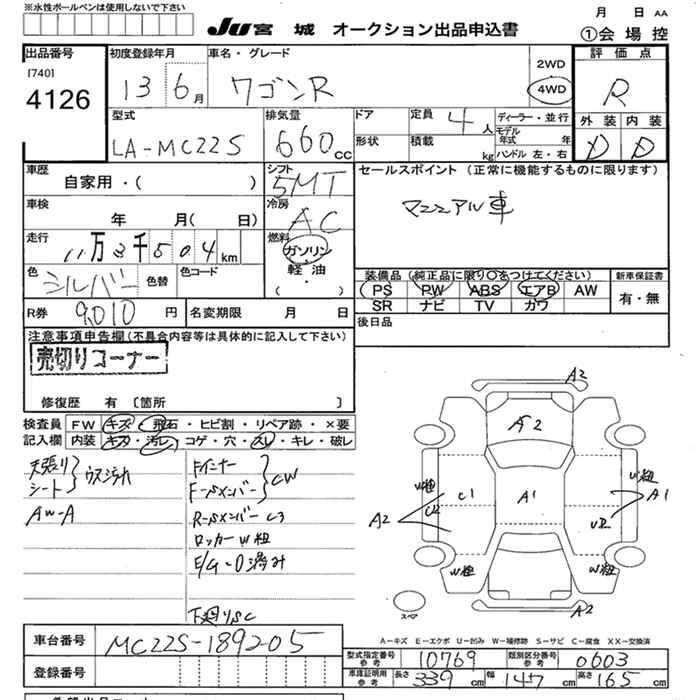 ※水性ボールペンは使用しないで下さい
JU 宮城 オークション出品申込書
月 日 AA
①会場控
出品番号 [740] 4126
初度登録年月 13 6月
車名・グレード ワゴンR
2WD
4WD
評価点 R
型式 LA-MC22S
排気量 660cc
ドア
形状
定員 4人
積載 kg
ディーラー・並行
モデル年式 年
ハンドル 左・右
外装 内装
D D
車歴 自家用・( )
シフト 5MT
セールスポイント (正常に機能するものに限ります)
マニュアル車
車検 年 月( 日)
冷房 AC
走行 11万3千504km
燃料 ガソリン
軽・油
( )
色 シルバー 色替 色コード
装備品(純正品に限り○をつけてください)
新車保証書
PS PW ABS エアB AW
有・無
SR ナビ TV カワ
R券 9,010円
名変期限 月 日
後日品
注意事項申告欄(不具合内容等は具体的に記入して下さい)
売切りコーナー
修復歴 有〔箇所 〕
検査員記入欄
FW キズ・飛石・ヒビ割・リペア跡・×要
内装 キズ・汚レ・コゲ・穴・スレ・キレ・破レ
天張り
シート
ウス汚れ
AW-A
Fインナー
F-サメンバー
CW
R-サメンバー C3
ロッカーW粗
E/G-O済み
下廻りSC
A2
A2
U粗
C1
U2
A2
A1
U粗
A1
U2
W粗
W粗
A2
スペア
A-キズ E-エクボ U-凹み W-補修跡 S-サビ C-腐食 XX-交換済
車台番号 MC22S-189205
型式指定番号 参考 10769
類別区分番号 参考 0603
登録番号
車庫証明用 参考 長さ 339cm 幅 147cm 高さ 165cm